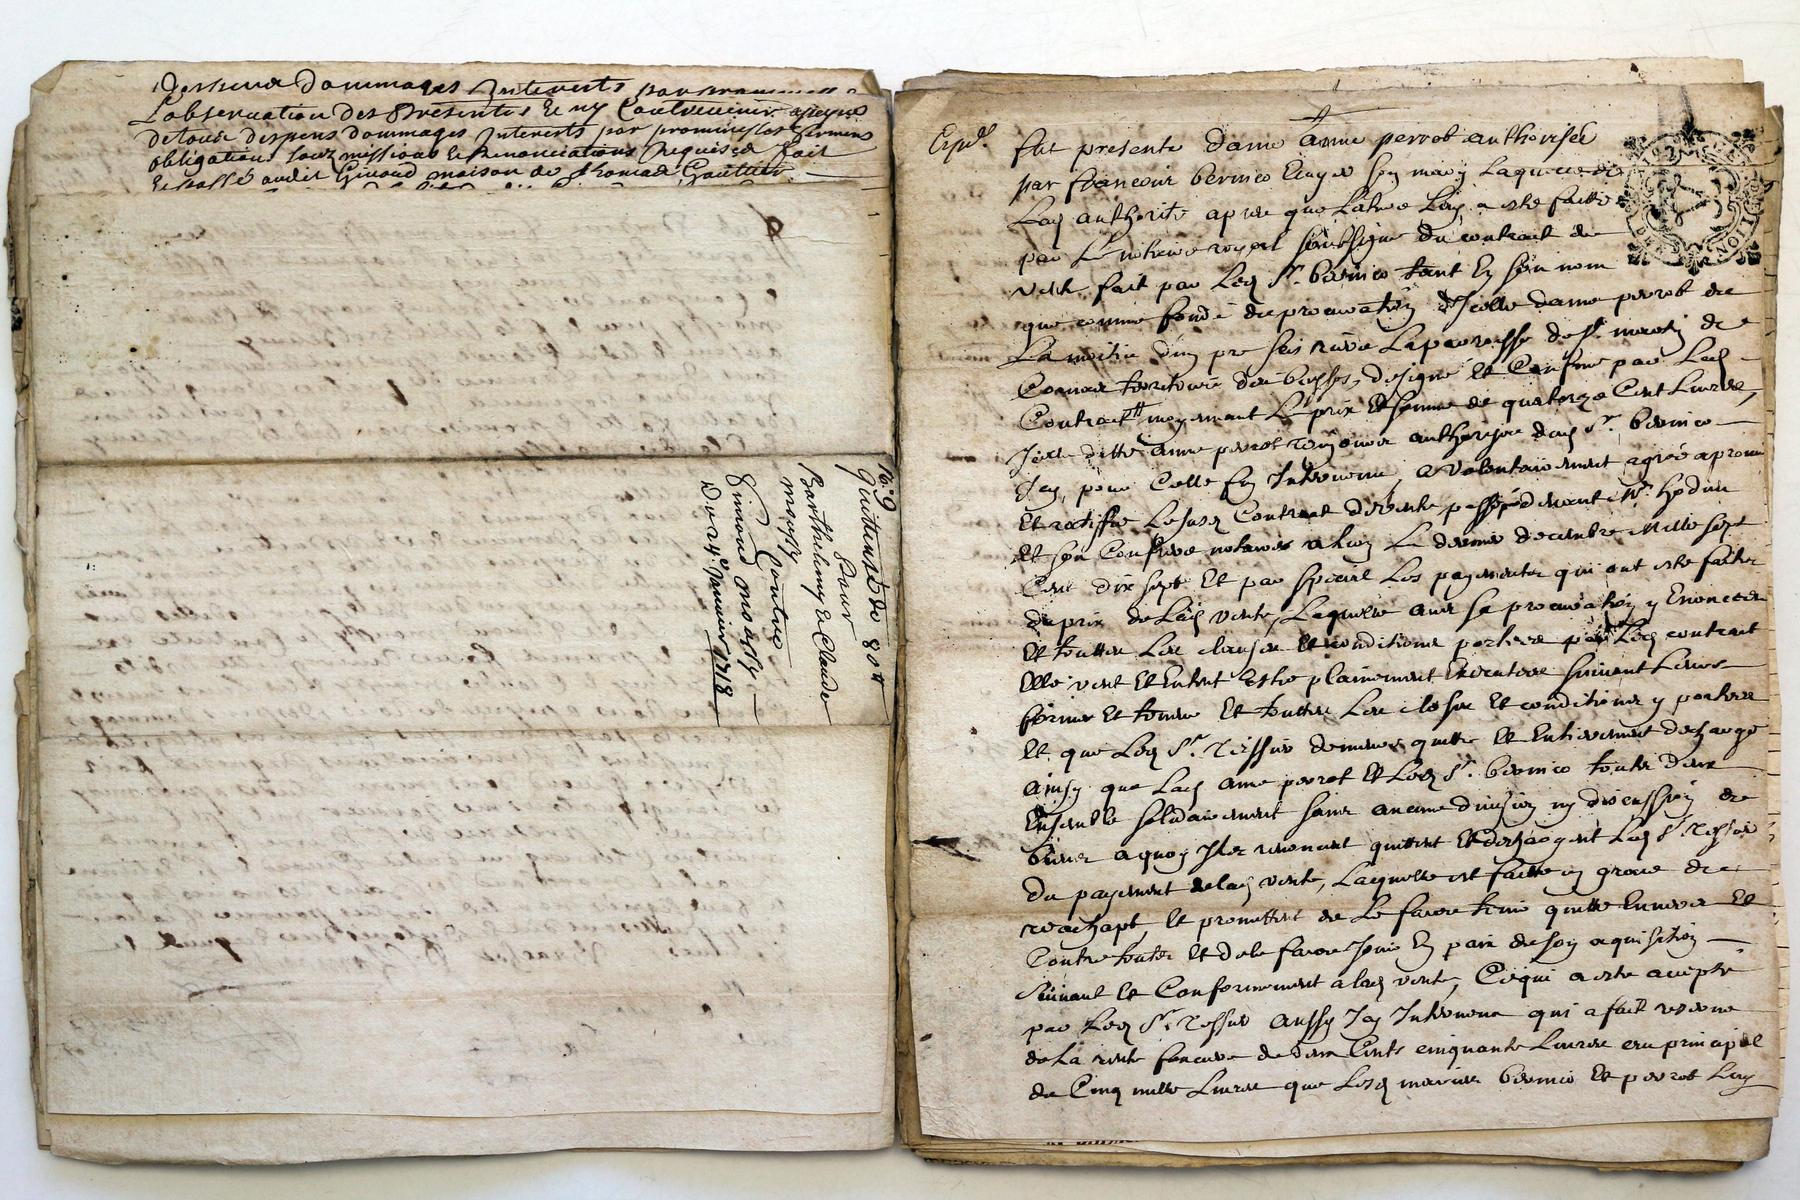 dommages Interests
L'observation des Presentes Et ny Contrevenir apeyne
detous despens dommages Interests par promines les sermens
obligations soubzmissions Et Renonciations Requises fait
Et passé audit Givaud maison de Thomas Gautier
No. 9
Quittance de 80 tt
pour
Barthelemy Et Claude
massy
Contre
Simond massy
Du 24e Janvier 1718
Expdt.
fut presente dame anne perrot authorisee
par francois bernico Ecuyer son mary Laquelle de
Lad authorité apres que Lature Luy a este faitte
par Le notaire royal soubsigne du contrat de
vente fait par Led Sr. bernico tant En son nom
que comme fondé de procuration d'Icelle dame perrot de
La moitie d'un pre scis rière La parroisse de St martin de
Cornas territoire des busses, designé Et Confiné par Led
Contrat moyennant Le prix Et somme de quatorze Cent Livres,
Icelle ditte anne perrot toujours authorisée dud Sr. bernico
Icy, pour Celle fin Intervenue, a volontairement agréé aprouvé
Et ratiffié Le susd Contrat de vente passé pardevant Me. hodin
Et son Confrere notaires a Lion Le dernier decembre Mille sept
Cent dix sept Et par special Les payements qui ont este faits
du prix de Lad vente, Laquelle avec sa procuration y Enoncée
Et touttes Les clauses Et conditions portées par Led contrat
Elle veut Et Entent Estre plainement Executées suivant Leurs
forme Et teneur Et touttes Les clauses Et conditions y portées
Et que Led Sr. Tessier demeure quitte Et Entierement dechargé
ainsy que Lad anne perrot Et Led Sr. bernico touts deux
Ensemble solidairement sans aucune division ny discussion de
biens aquoy Ils renoncent quittent Et deschargent Led Sr. Tessier
du payement de lad vente, Laquelle est faitte en grace de
reachapt, Et promettent de Le faire tenir quitte Envers Et
Contre touts Et de le faire Jouir En paix de son aquisition
suivant Et Conformement a lad vente, Ce qui a este accepté
par Led Sr. Tessier aussy Icy Intervenu qui a fait reserve
de La rente fonciere de deux Cents cinquante Livres au principal
de Cinq mille Livres que Lesd mariés bernico Et perrot Luy